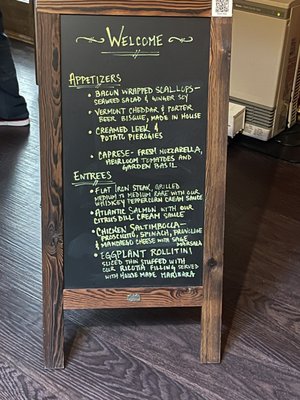 Welcome
Appetizers
• Bacon Wrapped Scallops-
Seaweed Salad & Ginger Soy
• Vermont Cheddar & Porter
Beer Bisque, Made in House
• Creamed Leek &
Potato Pierogies
• Caprese- Fresh Mozzarella,
Heirloom Tomatoes and
Garden Basil
Entrees
• Flat Iron Steak, Grilled
Medium to Medium Rare with our
Whiskey Peppercorn Cream Sauce
• Atlantic Salmon with our
Citrus Dill Cream Sauce
• Chicken Saltimbocca-
Prosciutto, Spinach, Provolone
& Manchego Cheese with Sage
Marsala
• Eggplant Rollitini
Sliced Thin Stuffed with
our Ricotta Filling Served
with House Made Marinara